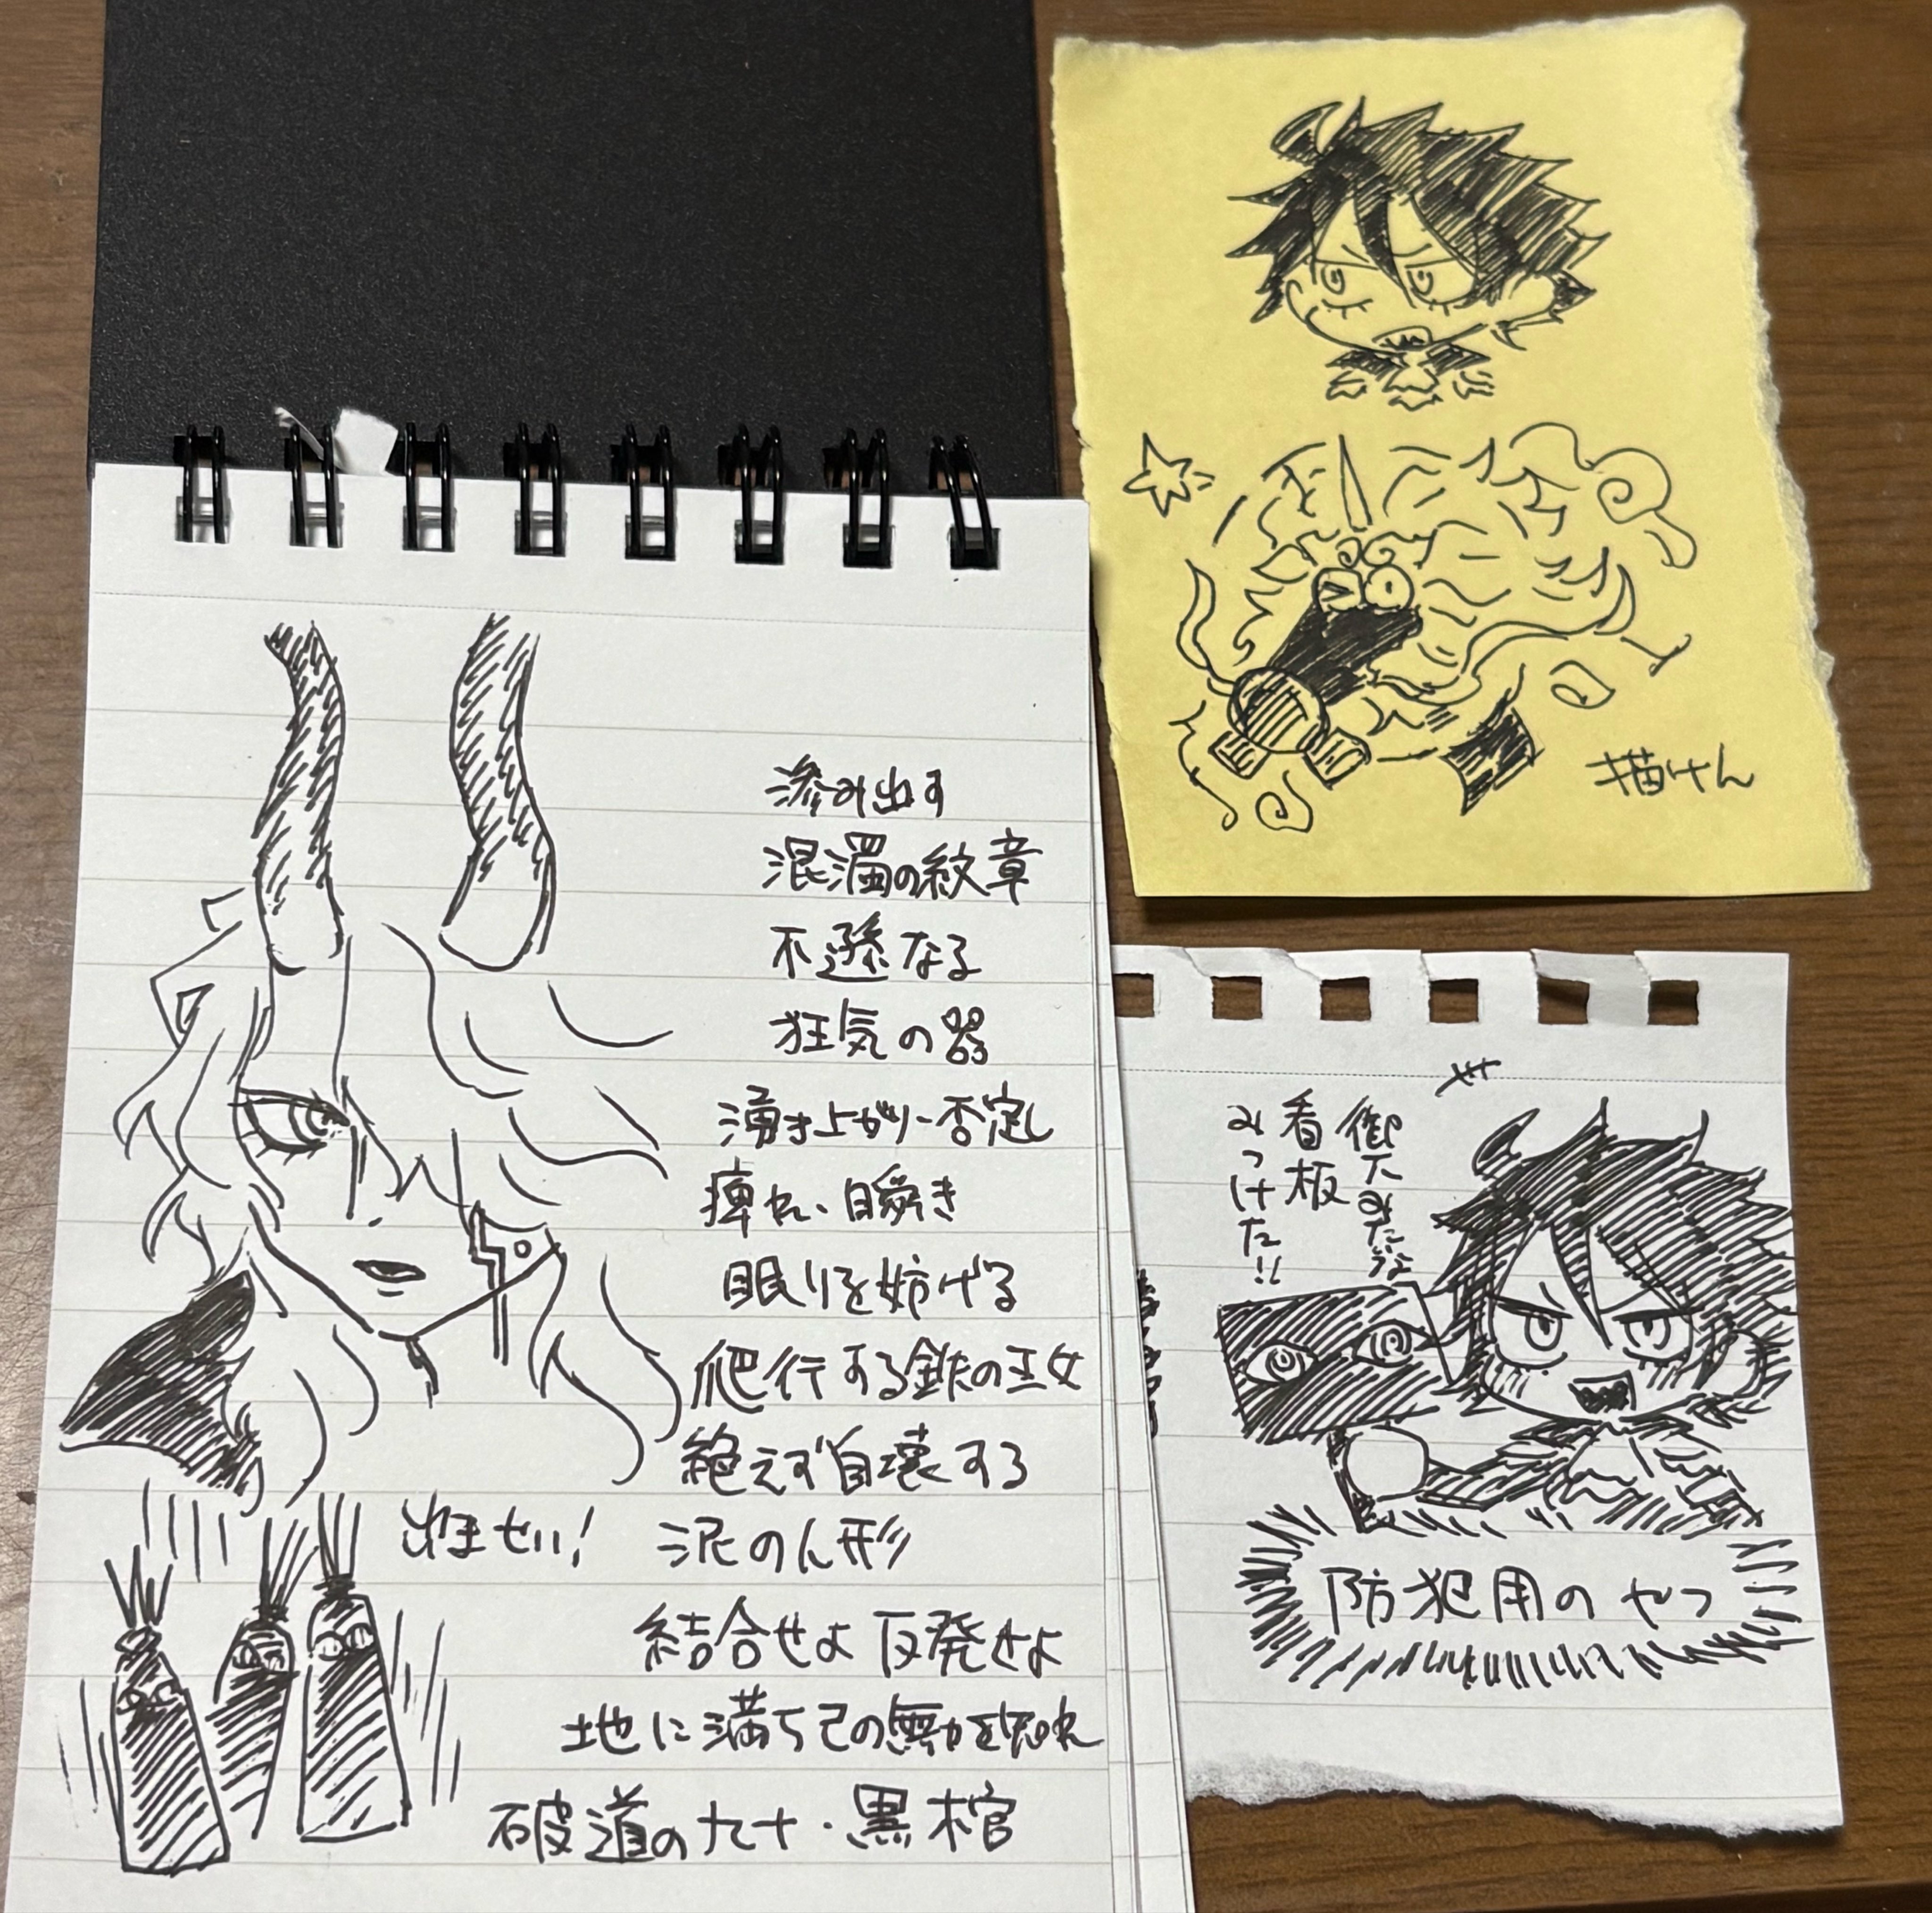 滲み出す
混濁の紋章
不遜なる
狂気の器
湧き上がり・否定し
痺れ、瞬き
眠りを妨げる
爬行する鉄の王女
絶えず自壊する
泥の人形
結合せよ 反発せよ
地に満ち己の無力を知れ
破道の九十・黒棺
出ませい!
描けん
御天みたいな
看板
みつけた!!
防犯用のやつ